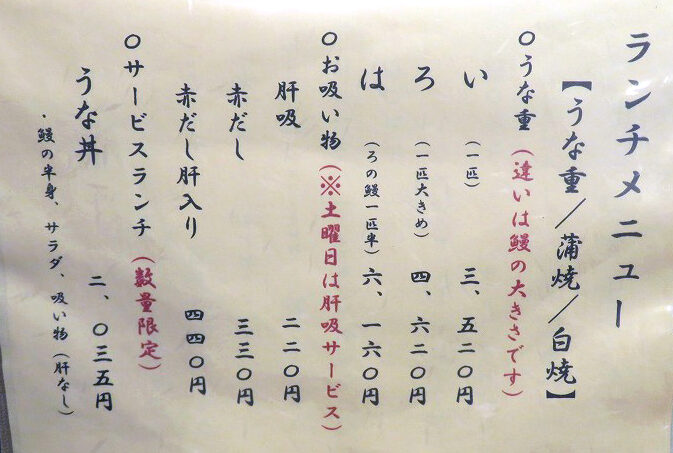 ランチメニュー
【うな重／蒲焼／白焼】
○うな重（違いは鰻の大きさです）
い（一匹）三、五二〇円
ろ（一匹大きめ）四、六二〇円
は（ろの鰻一匹半）六、一六〇円
○お吸い物（※土曜日は肝吸サービス）
肝吸 二二〇円
赤だし 三三〇円
赤だし肝入り 四四〇円
○サービスランチ（数量限定）
うな丼 二、〇三五円
・鰻の半身、サラダ、吸い物（肝なし）